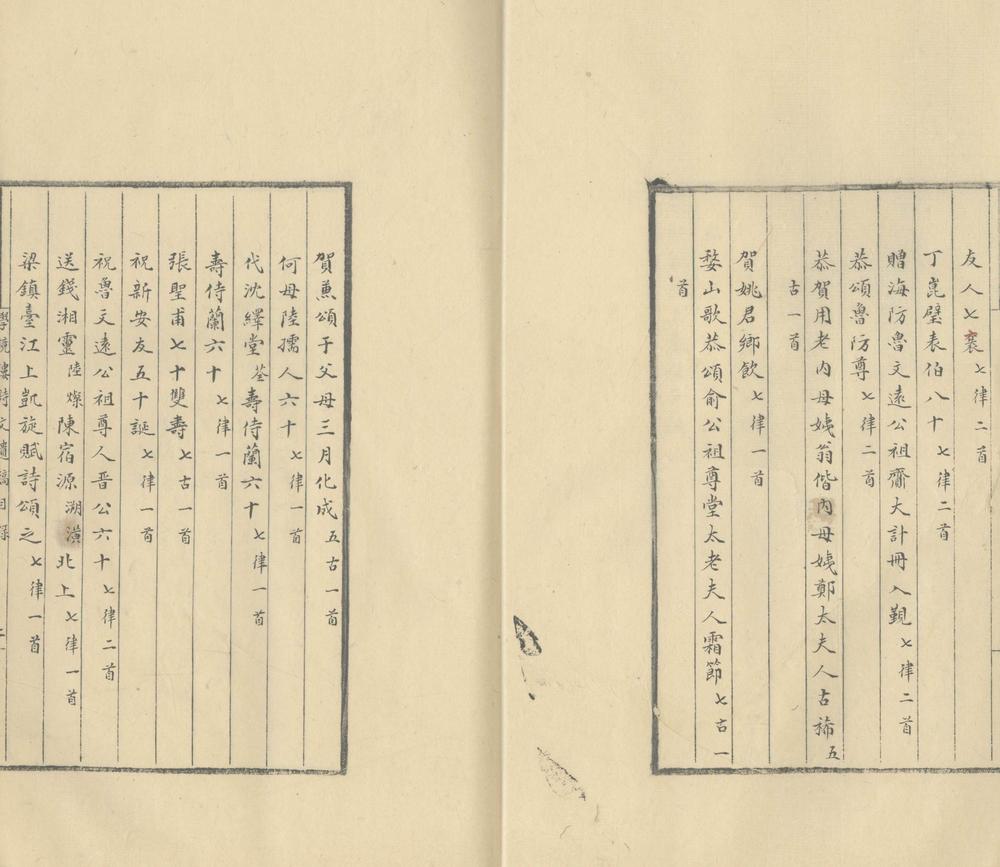 友人七襄七律二首
丁崑璧表伯八十七律二首
贈海防魯文遠公祖齎大計冊入覲七律二首
恭頌魯防尊七律二首
恭賀用老內母姨翁偕內母姨鄭太夫人古稀五
古一首
賀姚君鄉飲七律一首
婺山歌恭頌俞公祖尊堂太老夫人霜節七古一
首
賀兼頌于父母三月化成五古一首
何母陸孺人六十七律一首
代沈繹堂荃壽侍蘭六十七律一首
壽侍蘭六十七律一首
張聖甫七十雙壽七古一首
祝新安友五十誕七律一首
祝魯文遠公祖尊人晋公六十七律二首
送錢湘靈陸燦陳宿源溯潢北上七律一首
梁鎮臺江上凱旋賦詩頌之七律一首